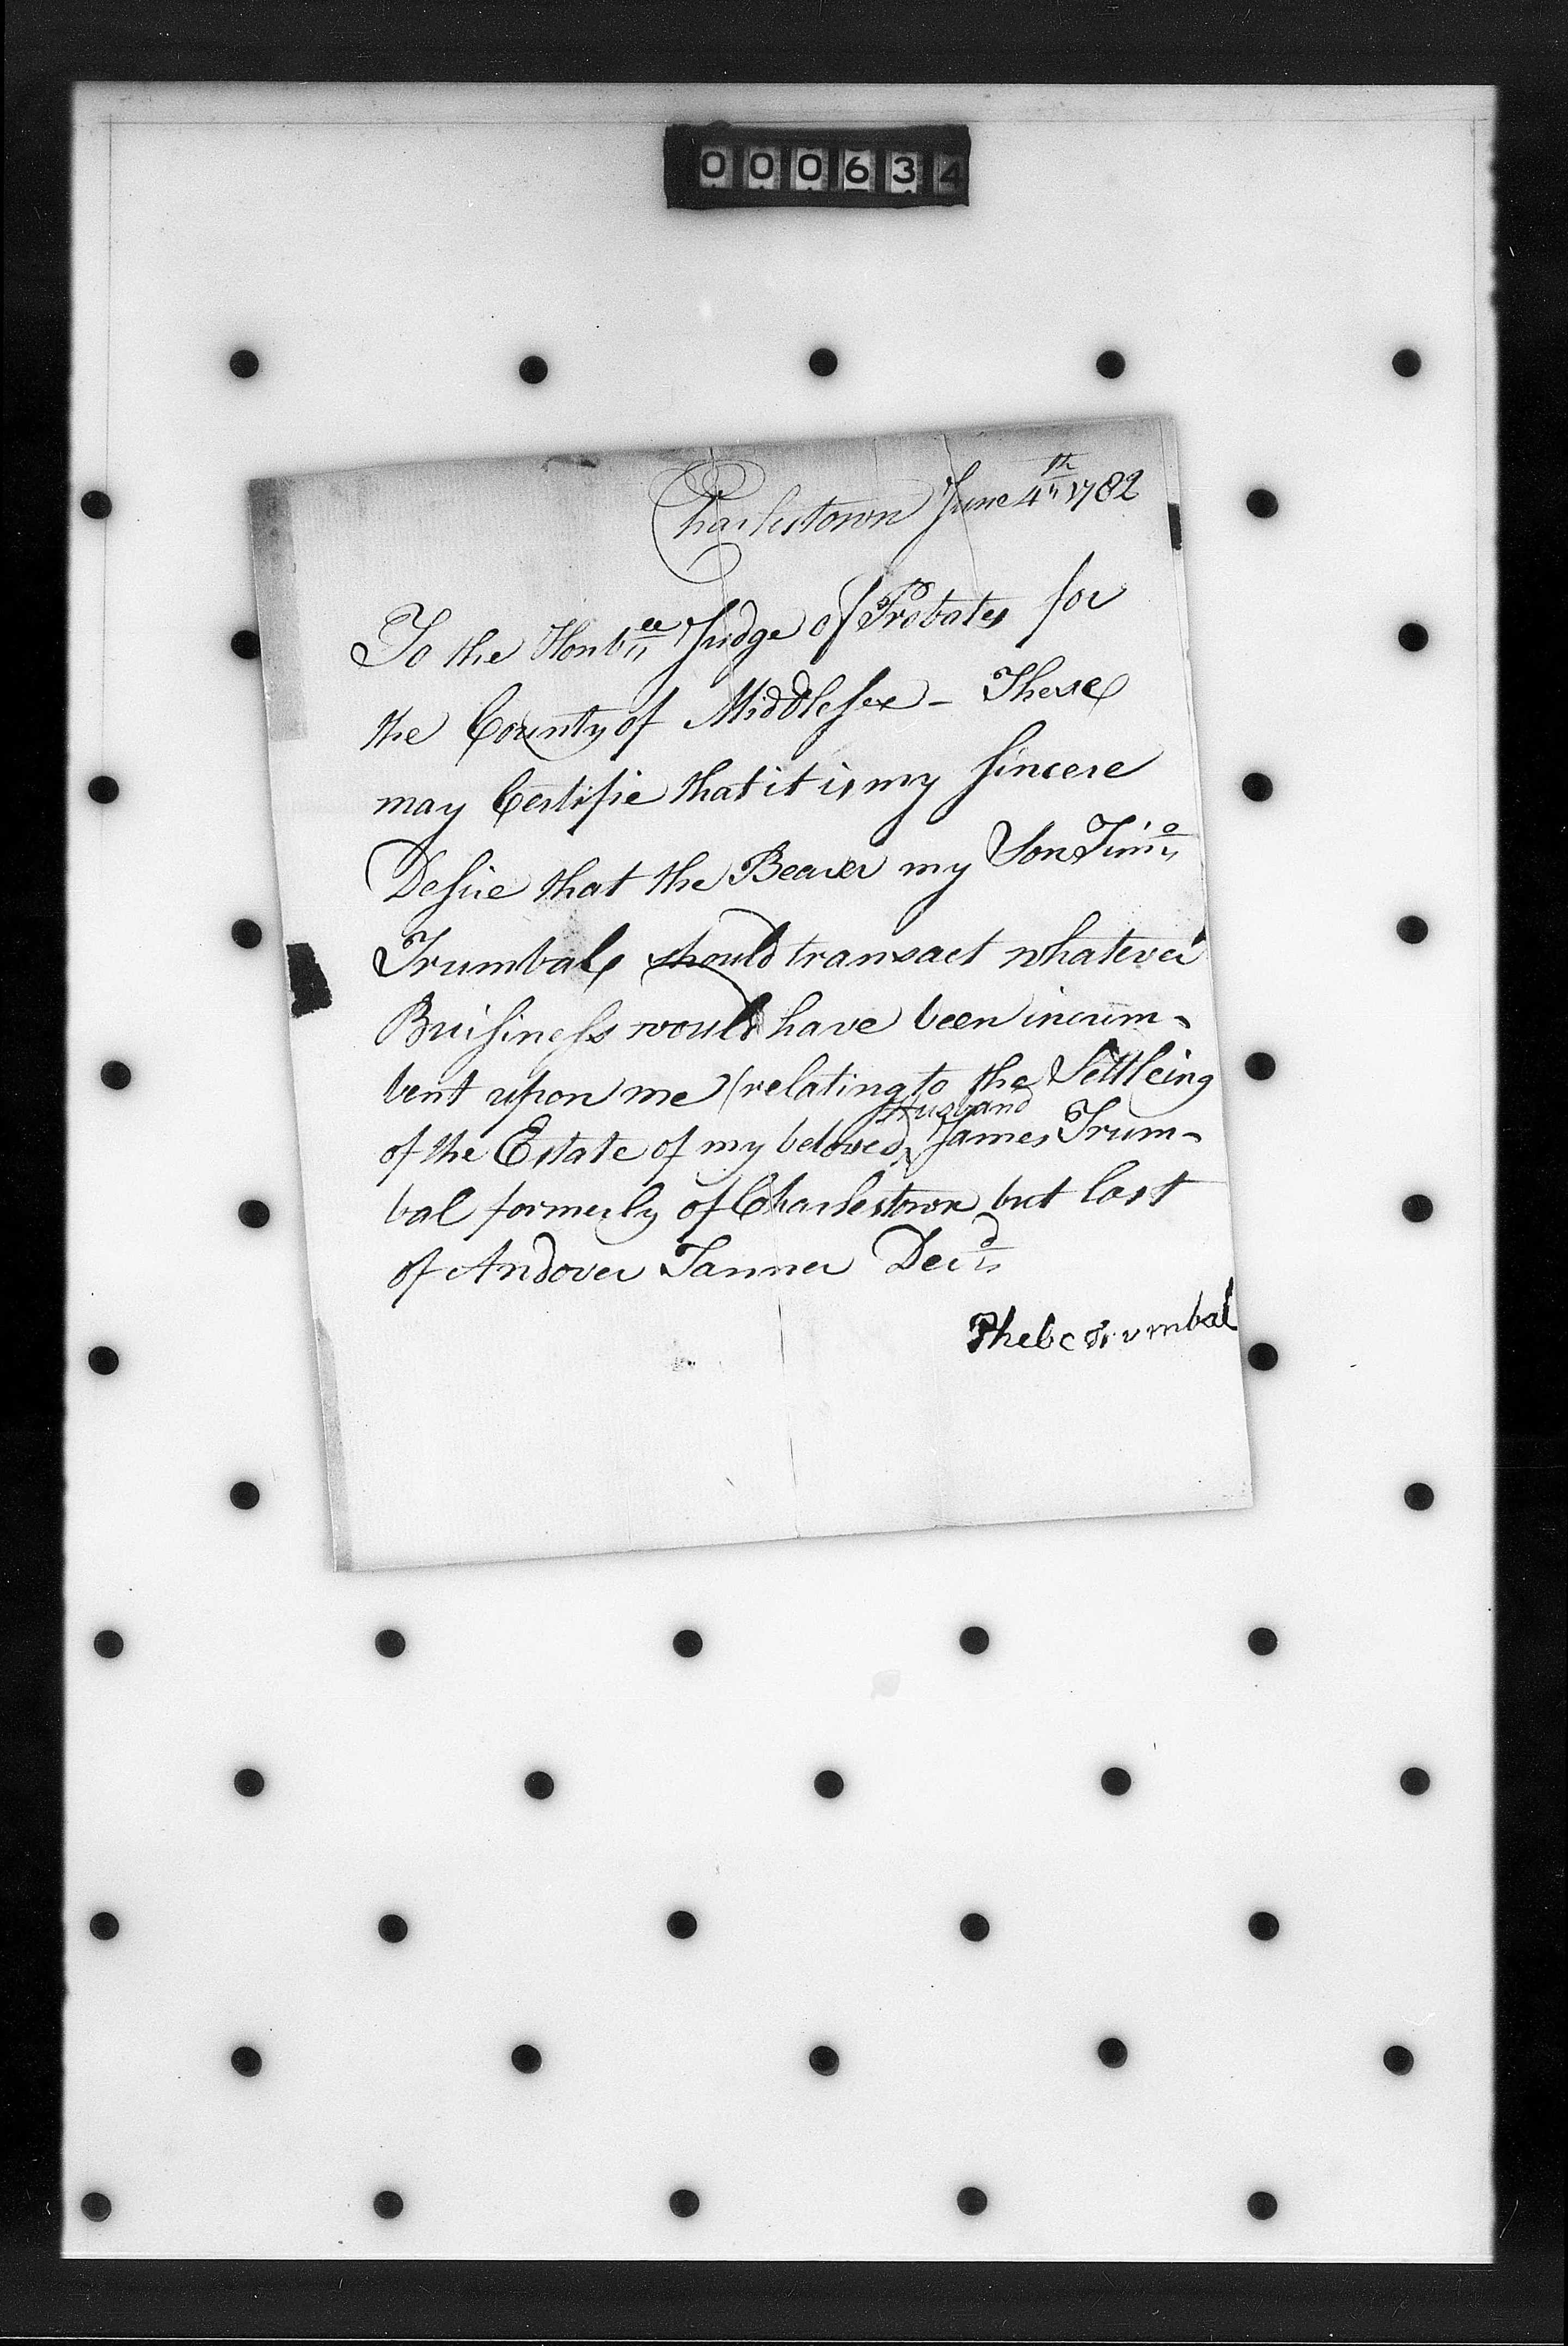 000634
Charlestown June 4th 1782
To the Honble Judge of Probates for
the County of Middlesex - These
may Certifie that it is my sincere
Desire that the Bearer my Son Timo
Trumbal should transact whatever
Buisiness would have been incum-
bent upon me (relating to the Settleing
Husband
of the Estate of my beloved ^ James Trum-
bal formerly of Charlestown but last
of Andover Tanner Decd
Phebe Trumbal